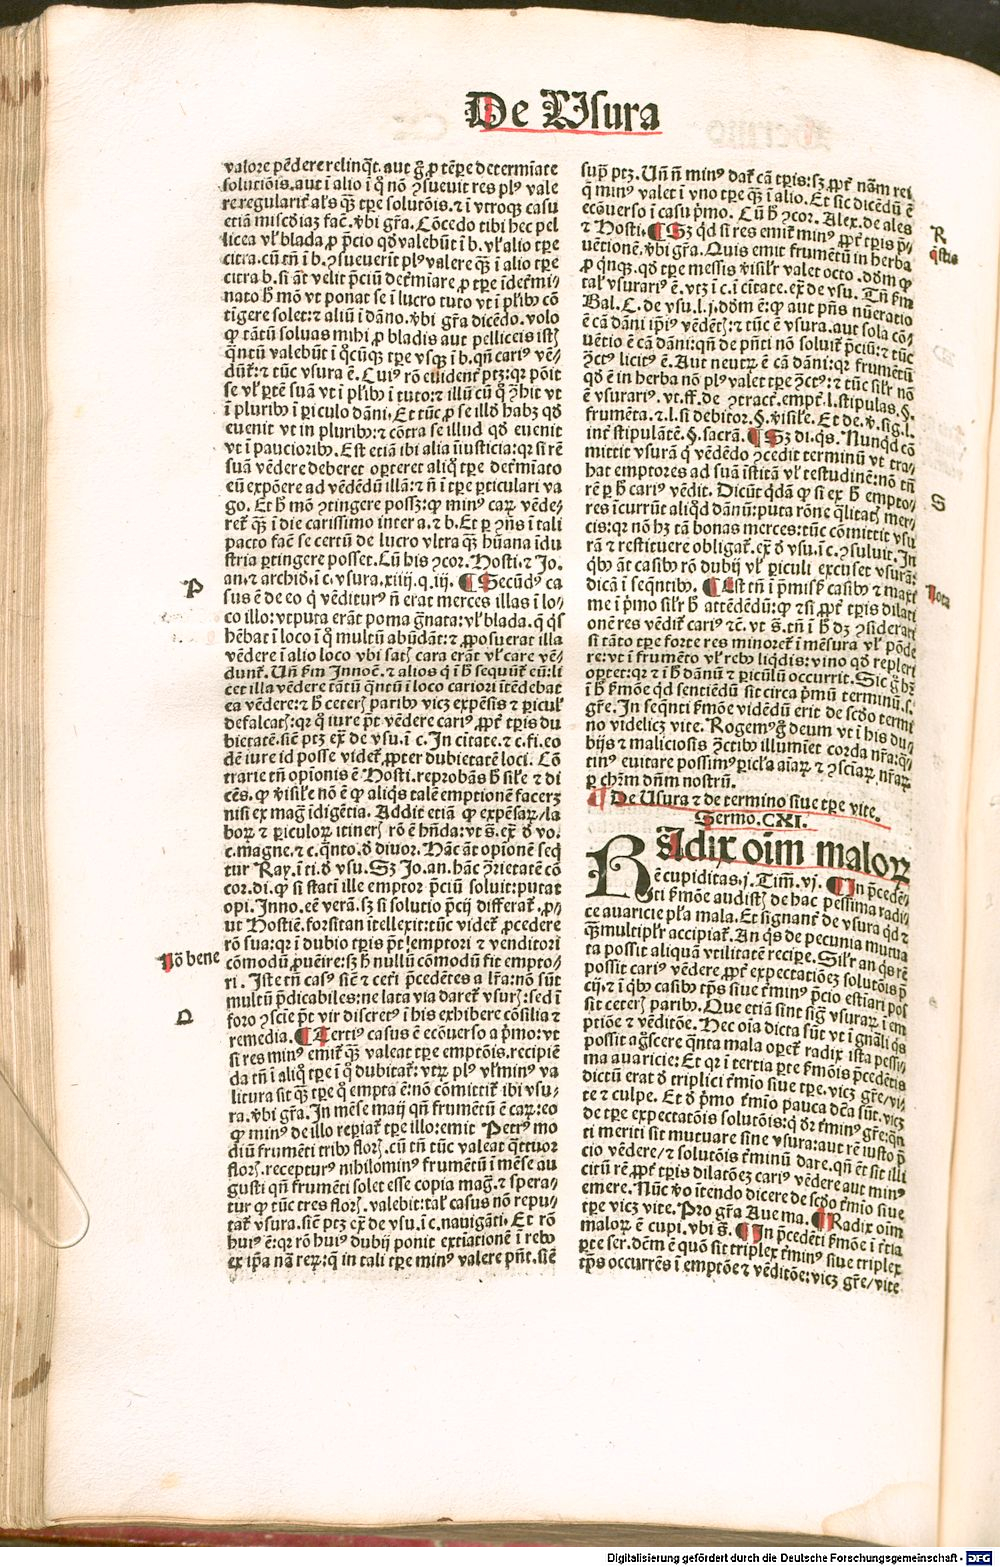 De Usura
valore pēdere relinq̄t. aut g̊ ꝓ tēꝑe determīate
solutiōis. aut ī alio ī q̊ nō ꝯsuevit res plꝰ vale
re regularit̄ al's q̄ꝫ tꝑe solutōis. ⁊ ī vtroqꝫ casu
etiā mīscōiaꝫ fac̄. v̓bi gr̄a. Cōcedo tibi hec pel
licea vl̓ blada, ꝓ p̄cio qd̓ valebūt ī b. vl̓ alio tꝑe
citra. cū tn̄ ī b. ꝯsueverīt plꝰ valere q̄ꝫ ī alio tꝑe
citra b. si āt velit p̄ciū det̓miare, ꝓ tꝑe īdet̓mi/
nato h̄ mō vt ponat se ī lucro tuto vt ī pl'ibꝰ cō
tigere solet: ⁊ aliū ī dāno. v̓bi gr̄a dicēdo. volo
ꝙ tātū soluas mihi ꝓ bladis aut pelliceis isṭ
q̄ntū valebūt ī q̊cūqꝫ tꝑe vsqꝫ ī b. qn̄ cariꝰ vē/
dūt̄: ⁊ tūc vsura ē. Cuiꝰ rō evident̄ ptꝫ: qꝛ pōit
se vl̓ ꝑtē suā vt ī pl'ibꝰ ī tuto: ⁊ illū cū q̊ ꝯhit vt
ī pluribꝰ ī ꝑiculo dāni. Et tūc ꝓ se illd̓ habꝫ qd̓
euenit vt in pluribꝰ: ⁊ cōtra se illud qd̓ euenit
vt ī paucioribꝰ. Est etiā ibi alia īiusticia: qꝛ si rē
suā vēdere deberet oꝑteret aliq̊ tꝑe det̓mīato
eū expōere ad vēdēdū illā: ⁊ n̄ ī tꝑe ꝑticulari va
go. Et h̄ mō ꝯtingere possꝫ: ꝙ minꝰ caꝝ vēde/
ret̄ q̄ꝫ ī die carissimo inter a. ⁊ b. Et ꝑ ꝯn̄s ī tali
pacto fac̄ se certū de lucro vltra q̄ꝫ hūana īdu
stria ꝑtingere posset. Cū his ꝯcor. Hosti. ⁊ Jo.
an. ⁊ archid̓. ī c. vsura. xiiij. q. iij. ¶ Secūdꝰ ca
sus ē de eo q̇ vēditurꝰ n̄ erat merces illas ī lo/
co illo: vtputa erāt poma gn̄ata: vl̓ blada. q̇ q̇s
hēbat ī loco ī q̊ multū abūdāt: ⁊ ꝓposuerat illa
vēdere ī alio loco vbi satꝭ cara erāt vl̓ care vē/
dunt̄. Un̄ km̄ Innoc̄. ⁊ alios q̇ ī h̄ sequūt̄ eū: li
cet illa vēdere tātū q̄ntū ī loco cariori ītēdebat
ea vēdere: ⁊ h̄ ceterꝭ paribꝰ vicꝫ expēsis ⁊ ꝑicul'
defalcatꝭ: qꝛ q̇ iure p̄t vēdere cariꝰ, ꝓpt̄ tꝑis du
bietatē. sic̄ ptꝫ ex̄ de vsu. ī c. In ciuitate. ⁊ c. fi. eo
dē iure id posse videt̄, ꝓpter dubietatē loci. Cō
trarie tn̄ opionis ē Hosti. reprobās h̄ sil'e ⁊ di
cēs. ꝙ v̓isile nō ē ꝙ aliqs talē emptionē facerꝫ
nisi ex maḡ īdigētia. Addit etiā ꝙ expēsaꝝ/la
boꝝ ⁊ ꝑiculoꝝ itinerꝭ rō ē hn̄da: vt s̄. ex̄ d̓ vo.
c. magne. ⁊ c. q̄nto. d̓ diuor. Hāc āt opionē seq̄
tur Ray. ī ti. d̓ vsu. Sꝫ Jo. an. hāc ꝯrietatē cō
cor. di. ꝙ si statī ille emptor p̄ciū soluit: putat
opi. Inno. eē verā. sꝫ si solutio p̄cij differat̄, ꝓ/
ut Hostiē. forsitan ītellexit: tūc videt̄ ꝓcedere
rō sua: qꝛ ī dubio tꝑis p̄t emptori ⁊ venditori
cōmodū ꝓuēire: sꝫ h̄ nullū cōmodū fit empto/
ri. Iste tn̄ casꝰ sic̄ ⁊ ceti p̄cedētes a lr̄a: nō sūt
multū p̄dicabiles: ne lata via daret̄ vsurꝭ: sed ī
foro ꝯscīe p̄t vir discretꝰ ī his exhibere cōsilia ⁊
remedia. ¶ Tertiꝰ casus ē ecōuerso a p̄mo: vt
si res minꝰ emit̄ q̄ꝫ valeat tꝑe emptōis. recipiē
da tn̄ ī aliq̊ tꝑe ī q̊ dubitat̄: vtꝝ plꝰ vl̓ minꝰ va
litura sit q̄ꝫ tꝑe q̊ empta ē: nō cōmittit̄ ibi vsu/
ra. v̓bi gr̄a. In mēse maij qn̄ frumētū ē caꝝ: eo
ꝙ minꝰ de illo reꝑiat̄ tꝑe illo: emit Petrꝰ mo
diū frumēti tribꝰ florꝭ. cū tn̄ tūc valeat q̄ttuor
florꝭ. recepturꝰ nihilominꝰ frumētū ī mēse au
gusti qn̄ frumēti solet esse copia maḡ. ⁊ spera/
tur ꝙ tūc tres florꝭ. valebit: tal' casus nō repu/
tat̄ vsura. sic̄ ptꝫ ex̄ de vsu. ī c. nauigāti. Et rō
huiꝰ ē: qꝛ rō huiꝰ dubij ponit extiatīonē ī rebꝰ
ex ip̄a nā reꝝ: q̇ in tali tꝑe minꝰ valere pn̄t. sic̄
P
Nō bene
Q
sup̄ ptꝫ. Un̄ n̄ minꝰ dat̄ cā tꝑis: sꝫ ꝓpt̄ nām rei
q̇ minꝰ valet ī vno tꝑe q̄ꝫ ī alio. Et sic dicēdū ē
ecōuerso ī casu p̄mo. Cū h̄ ꝯcor. Alex. de ales
⁊ Hosti. ¶ Sꝫ qd̓ si res emit̄ minꝰ ꝓpt̄ tꝑis p̄/
uētionē. v̓bi gr̄a. Quis emit frumētū in herba
ꝓ q̇nqꝫ. qd̓ tꝑe messis v̓isil'r valet octo. dōm ꝙ
tal' vsurariꝰ ē. vtꝫ ī c. ī ciuitate. ex̄ de vsu. Tn̄ km̄
Bal. C. de vsu. l. j. dōm ē: ꝙ aut p̄ns nūeratio
ē cā dāni ip̄iꝰ vēdētꝭ: ⁊ tūc ē vsura. aut sola cō/
uētio ē cā dāni: qn̄ de p̄nti nō soluit̄ p̄ciū: ⁊ tūc
ꝯctꝰ licitꝰ ē. Aut neutꝝ ē cā dāni: qꝛ frumētū
qd̓ ē in herba nō plꝰ valet tꝑe ꝯctꝰ: ⁊ tūc sil'r nō
ē vsurariꝰ. vt. ff. de ꝯtract̄. empt̄. l. stipulas. §.
frumēta. ⁊. l. si debitor. §. v̓isil'e. Et de. v̓. sig. l.
int̄ stipulātē. §. sacrā. ¶ Sꝫ di. qs. Nunqd̓ cō
mittit vsurā q̇ vēdēdo ꝯcedit terminū vt tra/
hat emptores ad suā īstitā vl̓ testudinē: nō tn̄
rē ꝑ h̄ cariꝰ vēdit. Dicūt q̇dā ꝙ si ex h̄ empto/
res īcurrūt aliqd̓ dānū: puta rōne q̄litatꝭ mer/
cis: qꝛ nō hꝫ tā bonas merces: tūc cōmittit vsu
rā ⁊ restituere obligat̄. ex̄ d̓ vsu. ī c. ꝯsuluit. In
q̇bꝰ āt casibꝰ rō dubij vl̓ ꝑiculi excuset vsurā:
dicā ī seq̄ntibꝰ. ¶ Est tn̄ ī p̄missꝭ casibꝰ ⁊ maxī
me ī p̄mo sil'r h̄ attēdēdū: ꝙ ⁊si ꝓpt̄ tꝑis dilati
onē res vēdit̄ cariꝰ ⁊c̄. vt s̄. tn̄ ī h̄ dꝫ ꝯsiderari
si tāto tꝑe forte res minoret̄ ī mēsura vl̓ pōde
re: vt ī frumēto vl̓ rebꝰ liqdis: vino qd̓ repleri
oꝑtet: qꝛ ⁊ ī h̄ dānū ⁊ ꝑiculū occurrit. Sic g̊ hꝫ
ī h̄ ƙmōe qd̓ sentiēdū sit circa p̄mū terminū. s.
gr̄e. In seq̄nti ƙmōe vidēdū erit de scd̓o termi
no videlicꝫ vite. Rogemꝰ g̊ deum vt ī his du/
bijs ⁊ maliciosis ꝯctibꝰ illumīet corda nr̄a: q̇/
tinꝰ euitare possimꝰ ꝑicl'a aīaꝝ ⁊ ꝯsciaꝝ nr̄aꝝ
ꝑ chm̄ dn̄m nostrū.
¶ De Usura ⁊ de termino siue tꝑe vite.
Sermo. CXI.
RAdix oīm maloꝝ
ē cupiditas. j. Tim̄. vj. ¶ In p̄cedē/
ti ƙmōe audistꝭ de hac pessima radi/
ce auaricie pl'a mala. Et signāt̄ de vsura qd̓ ⁊
q̄ꝫ multipl'r accipiat̄. An q̇s de pecunia mutua
ta possit aliquā vtilitatē recipe. Sil'r an q̇s rē
possit cariꝰ vēdere ꝓpt̄ expectatiōeꝫ solutōis p̄
cij. ⁊ ī q̇bꝰ casibꝰ tp̄s siue t̄minꝰ p̄cio estiari pos
sit ceterꝭ paribꝰ. Que etiā sint sig̊ vsuraꝝ ī em
ptiōe ⁊ vēditōe. Hec oīa dicta sūt vt ī gn̄ali q̇s
possit ag̊scere q̄nta mala oꝑet̄ radix ista pessi/
ma auaricie: Et qꝛ ī tertia ꝑte ƙmōis p̄cedētis
dictū erat d̓ triplici t̄mīo siue tꝑe. vicꝫ gr̄e/vi/
te ⁊ culpe. Et d̓ p̄mo t̄mīo pauca dc̄a sūt. vicꝫ
de tꝑe expectatōis solutōis: q̇ dr̄ t̄minꝰ gr̄e: qn̄
ti meriti sit mutuare sine vsura: aut rē iusto p̄
cio vēdere/⁊ solutōis t̄minū dare. qn̄ ēt sit illi
citū rē ꝓpt̄ tꝑis dilatōeꝫ cariꝰ vēdere aut minꝰ
emere. Nūc v̓o ītendo dicere de scd̓o t̄mīo siue
tꝑe vicꝫ vite. Pro gr̄a Aue ma. ¶ Radix oīm
maloꝝ ē cupi. vbi s̄. ¶ In p̄cedēti ƙmōe ī t̄tia
ꝑte ser. dēm ē quō sit triplex t̄minꝰ siue triplex
tp̄s occurrēs ī emptōe ⁊ vēditōe: vicꝫ gr̄e/vite
R
q̄stio
S
Nota
Digitalisierung gefördert durch die Deutsche Forschungsgemeinschaft - DFG